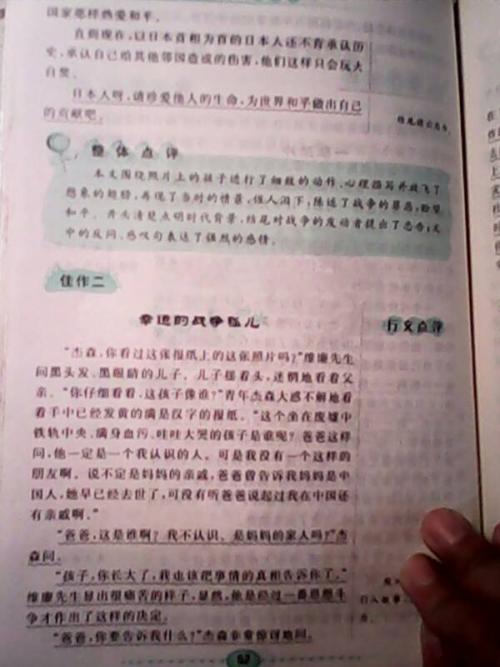 国家那样热爱和平。
直到现在，以日本首相为首的日本人还不肯承认历
史，承认自己给其他邻国造成的伤害，他们这样只会玩火
自焚。
日本人呀，请珍爱他人的生命，为世界和平做出自己
的贡献吧。
整体点评
本文围绕照片上的孩子进行了细致的动作、心理描写并放飞了
想象的翅膀，再现了当时的情景，催人泪下；陈述了战争的罪恶，盼望
和平。开头清楚点明时代背景，结尾对战争的发动者提出了忠告；文
中的反问、感叹句表达了强烈的感情。
佳作二
幸运的战争孤儿
行文点评
“杰森，你看过这张报纸上的这张照片吗？”维廉先生
问黑头发、黑眼睛的儿子。儿子摇着头，迷惘地看着父
亲。“你仔细看看，这孩子像谁？”青年杰森大惑不解地看
着手中已经发黄的满是汉字的报纸。“这个坐在废墟中
铁轨中央、满身血污、哇哇大哭的孩子是谁呢？爸爸这样
问，他一定是一个我认识的人。可是我没有一个这样的
朋友啊。说不定是妈妈的亲戚，爸爸曾告诉我妈妈是中
国人，她早已经去世了，可没有听爸爸说起过我在中国还
有亲戚啊。”
“爸爸，这是谁啊？我不认识。是妈妈的家人吗？”杰
森问。
“孩子，你长大了，我也该把事情的真相告诉你了。”
维廉先生显出很痛苦的样子，显然，他是经过一番思想斗
争才作出了这样的决定。
“爸爸，你要告诉我什么？”杰森非常惊讶地问。